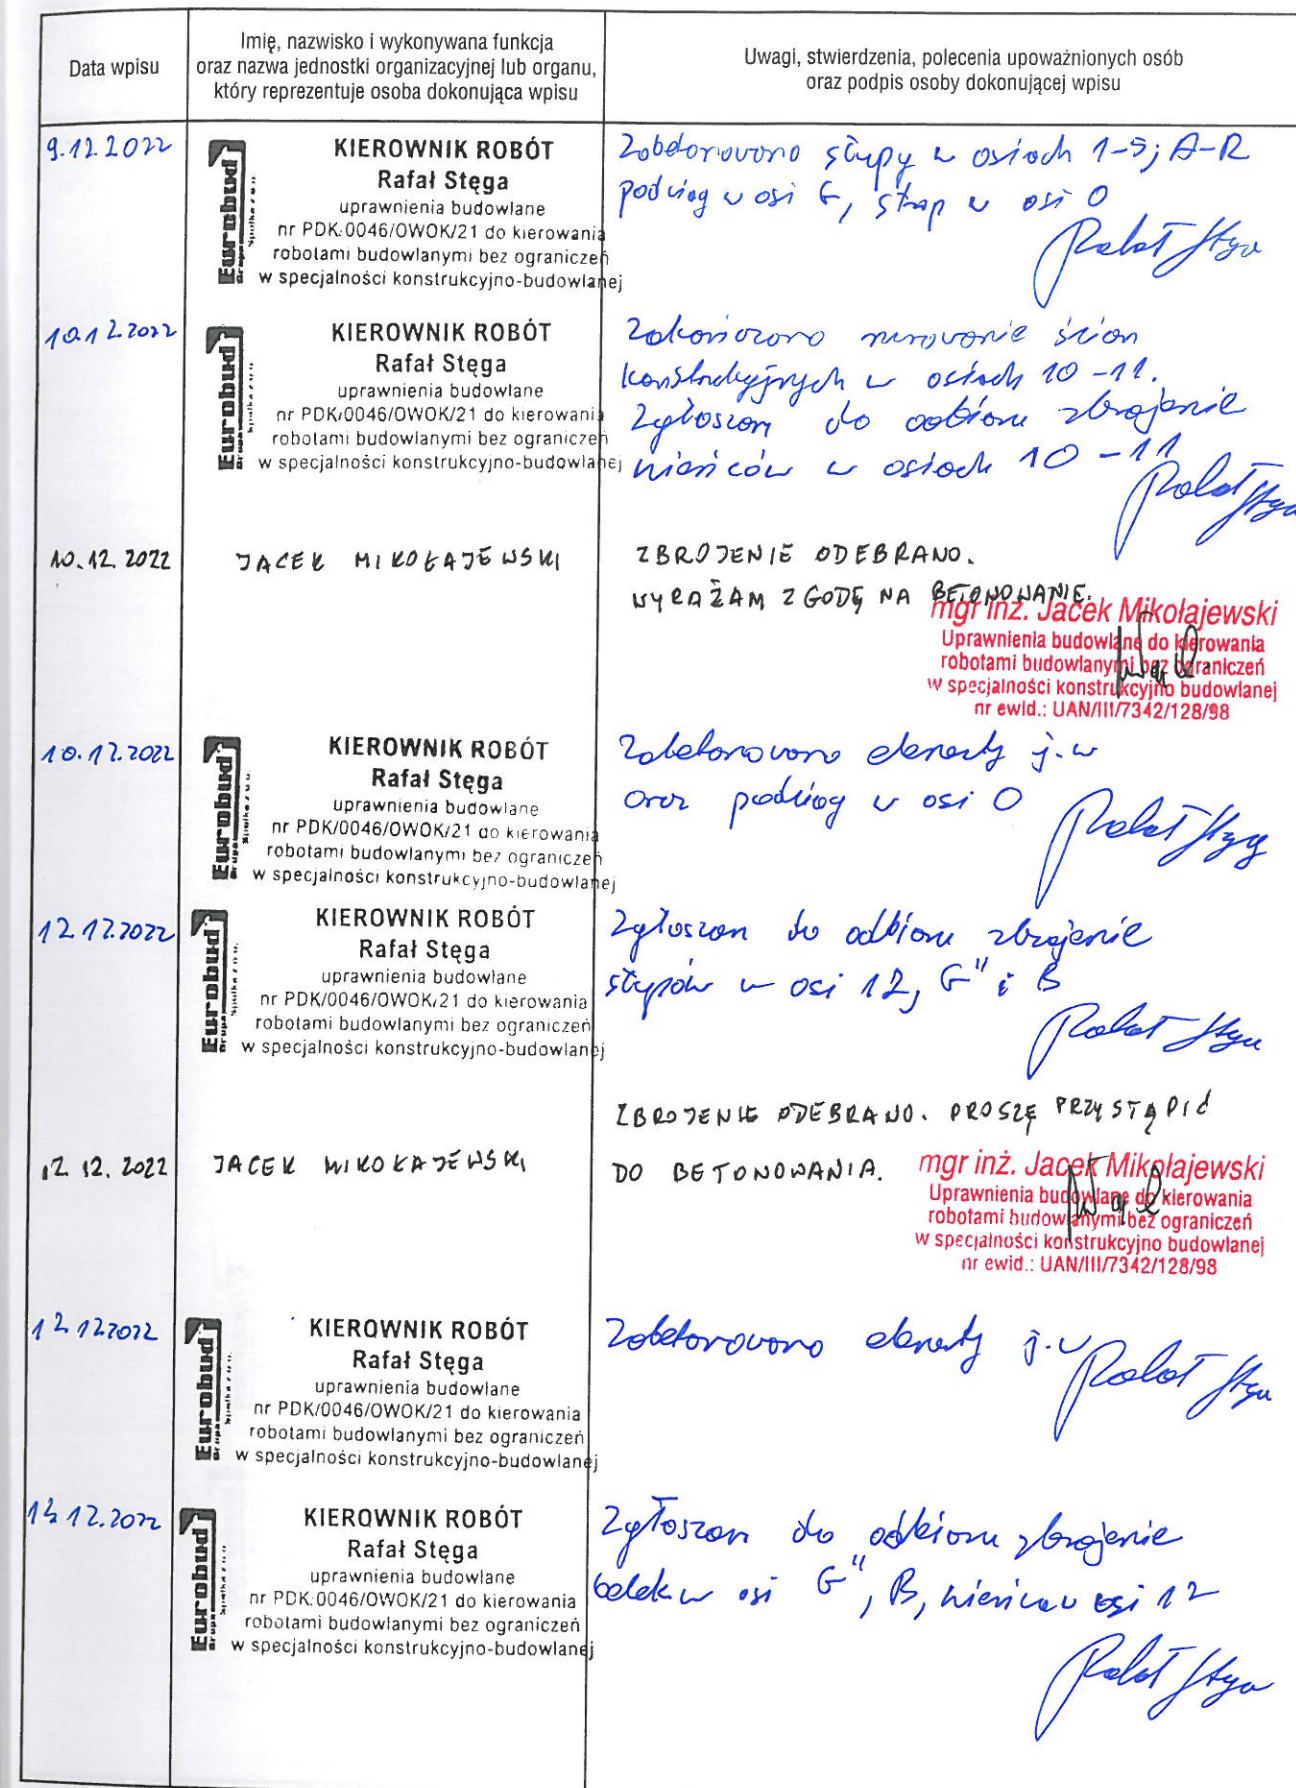 Data wpisu
Imię, nazwisko i wykonywana funkcja
oraz nazwa jednostki organizacyjnej lub organu,
który reprezentuje osoba dokonująca wpisu
Uwagi, stwierdzenia, polecenia upoważnionych osób
oraz podpis osoby dokonującej wpisu
9.12.2022
Eurobud
Grupa
Spółka z o.o.
KIEROWNIK ROBÓT
Rafał Stęga
uprawnienia budowlane
nr PDK/0046/OWOK/21 do kierowania
robotami budowlanymi bez ograniczeń
w specjalności konstrukcyjno-budowlanej
Zabetonowano słupy w osiach 1-5; A-R
podciąg w osi G, strop w osi O
Rafał Stęga
10.12.2022
Eurobud
Grupa
Spółka z o.o.
KIEROWNIK ROBÓT
Rafał Stęga
uprawnienia budowlane
nr PDK/0046/OWOK/21 do kierowania
robotami budowlanymi bez ograniczeń
w specjalności konstrukcyjno-budowlanej
Zakończono murowanie ścian
konstrukcyjnych w osiach 10-11.
Zgłoszono do odbioru zbrojenie
wieńców w osiach 10-11
Rafał Stęga
10.12.2022
JACEK MIKOŁAJEWSKI
ZBROJENIE ODEBRANO.
WYRAŻAM ZGODĘ NA BETONOWANIE.
mgr inż. Jacek Mikołajewski
Uprawnienia budowlane do kierowania
robotami budowlanymi bez ograniczeń
w specjalności konstrukcyjno budowlanej
nr ewid.: UAN/III/7342/128/98
10.12.2022
Eurobud
Grupa
Spółka z o.o.
KIEROWNIK ROBÓT
Rafał Stęga
uprawnienia budowlane
nr PDK/0046/OWOK/21 do kierowania
robotami budowlanymi bez ograniczeń
w specjalności konstrukcyjno-budowlanej
Zabetonowano elementy j.w
oraz podciąg w osi O
Rafał Stęga
12.12.2022
Eurobud
Grupa
Spółka z o.o.
KIEROWNIK ROBÓT
Rafał Stęga
uprawnienia budowlane
nr PDK/0046/OWOK/21 do kierowania
robotami budowlanymi bez ograniczeń
w specjalności konstrukcyjno-budowlanej
Zgłoszono do odbioru zbrojenie
słupów w osi 12, G" i B
Rafał Stęga
ZBROJENIE ODEBRANO. PROSZĘ PRZYSTĄPIĆ
12.12.2022
JACEK MIKOŁAJEWSKI
DO BETONOWANIA.
mgr inż. Jacek Mikołajewski
Uprawnienia budowlane do kierowania
robotami budowlanymi bez ograniczeń
w specjalności konstrukcyjno budowlanej
nr ewid.: UAN/III/7342/128/98
12.12.2022
Eurobud
Grupa
Spółka z o.o.
KIEROWNIK ROBÓT
Rafał Stęga
uprawnienia budowlane
nr PDK/0046/OWOK/21 do kierowania
robotami budowlanymi bez ograniczeń
w specjalności konstrukcyjno-budowlanej
Zabetonowano elementy j.w
Rafał Stęga
12.2022
Eurobud
Grupa
Spółka z o.o.
KIEROWNIK ROBÓT
Rafał Stęga
uprawnienia budowlane
nr PDK/0046/OWOK/21 do kierowania
robotami budowlanymi bez ograniczeń
w specjalności konstrukcyjno-budowlanej
Zgłoszono do odbioru zbrojenie
belek w osi G", B, wieńca w osi 12
Rafał Stęga